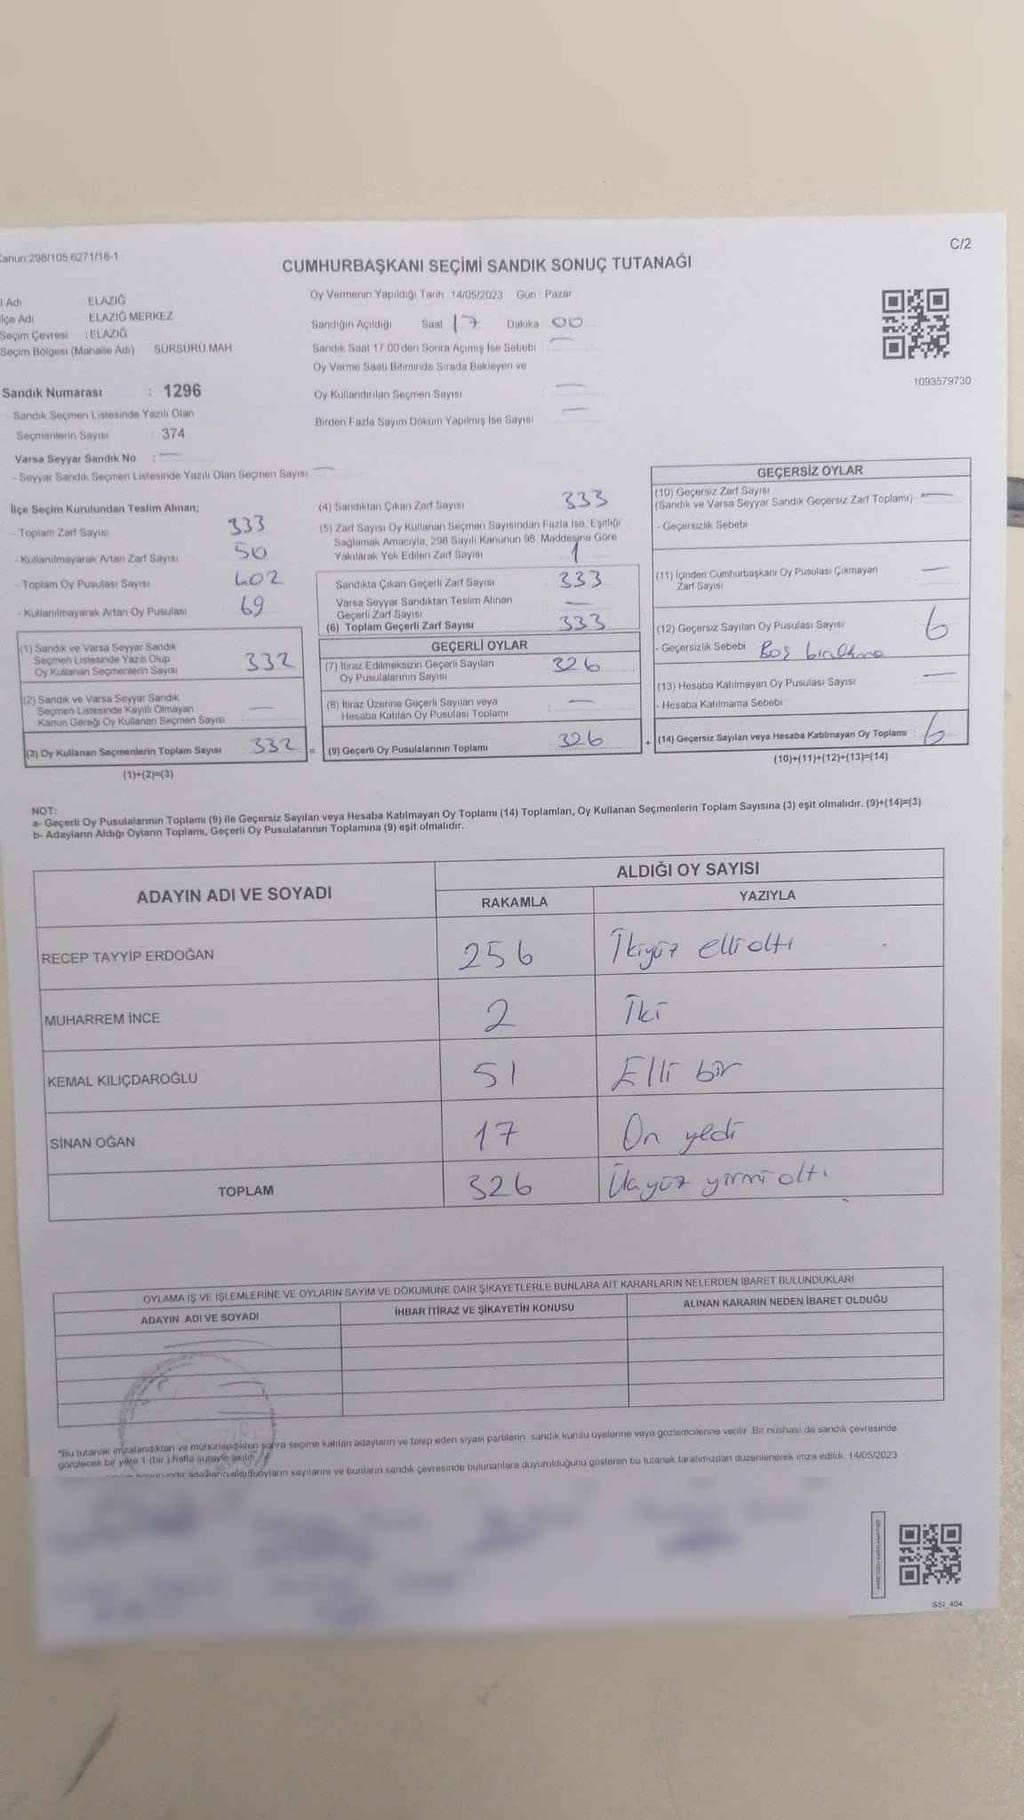 Kanun:298/105,6271/16-1
C/2
CUMHURBAŞKANI SEÇİMİ SANDIK SONUÇ TUTANAĞI
İl Adı ELAZIĞ
İlçe Adı ELAZIĞ MERKEZ
Seçim Çevresi : ELAZIĞ
Seçim Bölgesi (Mahalle Adı) SÜRSÜRÜ MAH
Oy Vermenin Yapıldığı Tarih 14/05/2023 Gün : Pazar
Sandığın Açıldığı Saat 17 Dakika 00
Sandık Saat 17.00'den Sonra Açılmış İse Sebebi —
Oy Verme Saati Bitiminde Sırada Bekleyen ve
Oy Kullandırılan Seçmen Sayısı —
Birden Fazla Sayım Döküm Yapılmış İse Sayısı —
1093579730
Sandık Numarası : 1296
Sandık Seçmen Listesinde Yazılı Olan
Seçmenlerin Sayısı : 374
Varsa Seyyar Sandık No : —
- Seyyar Sandık Seçmen Listesinde Yazılı Olan Seçmen Sayısı —
İlçe Seçim Kurulundan Teslim Alınan;
- Toplam Zarf Sayısı 333
- Kullanılmayarak Artan Zarf Sayısı 50
- Toplam Oy Pusulası Sayısı 402
- Kullanılmayarak Artan Oy Pusulası 69
(1) Sandık ve Varsa Seyyar Sandık
Seçmen Listesinde Yazılı Olup
Oy Kullanan Seçmenlerin Sayısı 332
(2) Sandık ve Varsa Seyyar Sandık
Seçmen Listesinde Kayıtlı Olmayan
Kanun Gereği Oy Kullanan Seçmen Sayısı —
(3) Oy Kullanan Seçmenlerin Toplam Sayısı 332
(1)+(2)=(3)
(4) Sandıktan Çıkan Zarf Sayısı 333
(5) Zarf Sayısı Oy Kullanan Seçmen Sayısından Fazla İse, Eşitliği
Sağlamak Amacıyla, 298 Sayılı Kanunun 98. Maddesine Göre
Yakılarak Yok Edilen Zarf Sayısı 1
Sandıkta Çıkan Geçerli Zarf Sayısı 333
Varsa Seyyar Sandıktan Teslim Alınan
Geçerli Zarf Sayısı —
(6) Toplam Geçerli Zarf Sayısı 333
GEÇERLİ OYLAR
(7) İtiraz Edilmeksizin Geçerli Sayılan
Oy Pusulalarının Sayısı 326
(8) İtiraz Üzerine Geçerli Sayılan veya
Hesaba Katılan Oy Pusulası Toplamı —
= (9) Geçerli Oy Pusulalarının Toplamı 326
GEÇERSİZ OYLAR
(10) Geçersiz Zarf Sayısı
(Sandık ve Varsa Seyyar Sandık Geçersiz Zarf Toplamı) —
- Geçersizlik Sebebi
(11) İçinden Cumhurbaşkanı Oy Pusulası Çıkmayan
Zarf Sayısı —
(12) Geçersiz Sayılan Oy Pusulası Sayısı 6
- Geçersizlik Sebebi Boş bırakma
(13) Hesaba Katılmayan Oy Pusulası Sayısı —
- Hesaba Katılmama Sebebi
+ (14) Geçersiz Sayılan veya Hesaba Katılmayan Oy Toplamı : 6
(10)+(11)+(12)+(13)=(14)
NOT:
a- Geçerli Oy Pusulalarının Toplamı (9) ile Geçersiz Sayılan veya Hesaba Katılmayan Oy Toplamı (14) Toplamları, Oy Kullanan Seçmenlerin Toplam Sayısına (3) eşit olmalıdır. (9)+(14)=(3)
b- Adayların Aldığı Oyların Toplamı, Geçerli Oy Pusulalarının Toplamına (9) eşit olmalıdır.
ADAYIN ADI VE SOYADI
ALDIĞI OY SAYISI
RAKAMLA YAZIYLA
RECEP TAYYİP ERDOĞAN 256 İkiyüz elli altı
MUHARREM İNCE 2 İki
KEMAL KILIÇDAROĞLU 51 Elli bir
SİNAN OĞAN 17 On yedi
TOPLAM 326 Üçyüz yirmi altı
OYLAMA İŞ VE İŞLEMLERİNE VE OYLARIN SAYIM VE DÖKÜMÜNE DAİR ŞİKAYETLERLE BUNLARA AİT KARARLARIN NELERDEN İBARET BULUNDUKLARI
ADAYIN ADI VE SOYADI İHBAR İTİRAZ VE ŞİKAYETİN KONUSU ALINAN KARARIN NEDEN İBARET OLDUĞU
*Bu tutanak imzalandıktan ve mühürlendikten sonra seçime katılan adayların ve talep eden siyasi partilerin sandık kurulu üyelerine veya gözlemcilerine verilir. Bir nüshası da sandık çevresinde
görülecek bir yere 1 (bir) hafta süreyle asılır.
adayların aldığı oyların sayılarını ve bunların sandık çevresinde bulunanlara duyurulduğunu gösteren bu tutanak tarafımızdan düzenlenerek imza edildi. 14/05/2023
SSI_404